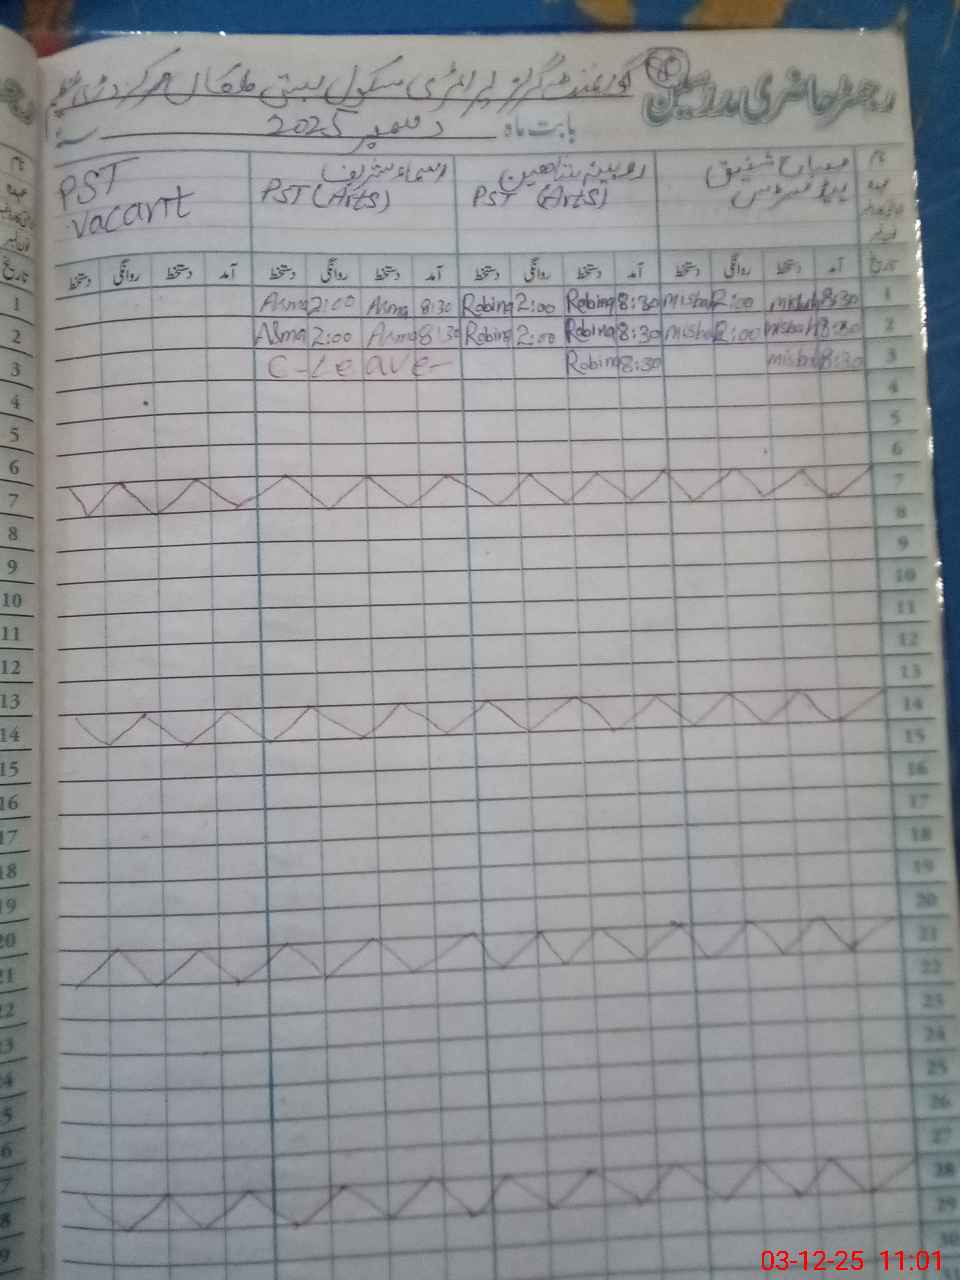 رجسٹر حاضری مدرسین
گورنمنٹ گرلز پرائمری سکول بستی
بابت ماہ دسمبر 2025
نام
عہدہ
مصباح شفیق
ہیڈ مسٹرس
روبینہ شاہین
PST (Arts)
اسماء شریف
PST (Arts)
PST
vacant
تاریخ آمد دستخط روانگی دستخط آمد دستخط روانگی دستخط آمد دستخط روانگی دستخط آمد دستخط روانگی دستخط تاریخ
1 Asma 2:00 Asma 8:30 Robina 2:00 Robina 8:30 misbah 2:00 misbah 8:30 1
2 Asma 2:00 Asma 8:30 Robina 2:00 Robina 8:30 misbah 2:00 misbah 8:30 2
3 C-Leave- Robina 8:30 misbah 8:30 3
4 4
5 5
6 6
7 7
8 8
9 9
10 10
11 11
12 12
13 13
14 14
15 15
16 16
17 17
18 18
19 19
20 20
21 21
22 22
23
24
25
26
27
28
29
30
03-12-25 11:01